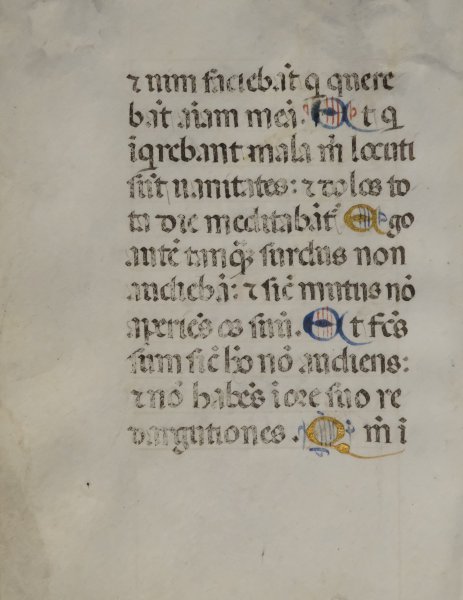 ⁊ uim faciebāt q̄ quere
bāt aīam meā. Et q̄
īq̄rebant mala m̄ locuti
sūt uanitates: ⁊ dolos to
ta die meditabāt͛ Ego
autē tanqȝ surdus non
audiebā: ⁊ sic̄ mutus nō
aperiēs os suū. Et fc̄s
sum sic̄ hō nō audiens:
⁊ nō habēs ī ore suo re
dargutiones. Qm̄ ī